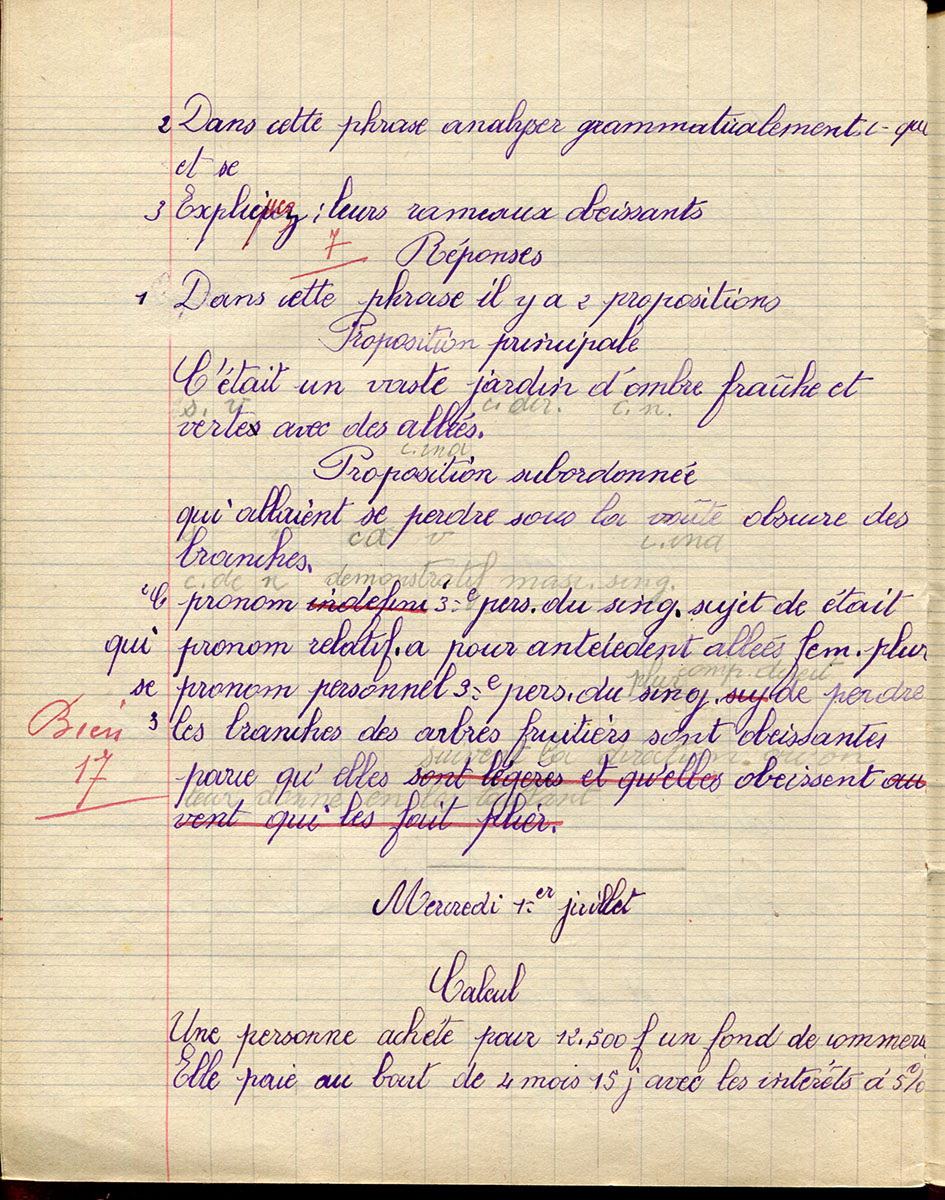 2 Dans cette phrase analyser grammaticalement c'- qui
et se
3 Expliquez : leurs rameaux obeissants
7
Réponses
1 Dans cette phrase il y a 2 propositions
Proposition principale
C'était un vaste jardin d'ombre fraîche et
s. v c. dir. c. n.
vertes avec des allées.
c. ind
Proposition subordonnée
qui allaient se perdre sous la voûte obscure des
v cd v c. ind
branches.
c. de n demonstratif masc. sing.
C' pronom indefini 3e pers. du sing. sujet de était
qui pronom relatif. a pour antécédent allées fem. plur
plur comp. direct
se pronom personnel 3e pers. du sing. suj de perdre
Bien
3 les branches des arbres fruitiers sont obeissantes
suivent la direction qu'on
17
parce qu'elles sont légeres et qu'elles obeissent au
leur donne en les taillant
vent qui les fait plier.
Mercredi 1er juillet
Calcul
Une personne achéte pour 12.500 f un fond de commerc
Elle paie au bout de 4 mois 15 j avec les intérêts à 5%